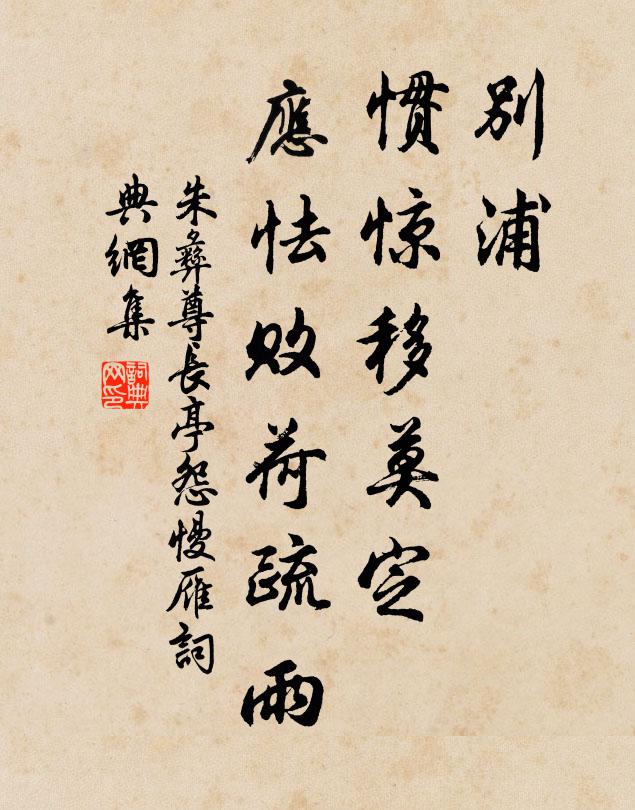 別浦
慣惊移莫定
應怯敗荷疏雨
朱彝尊長亭怨慢雁詞
典網集
詞典网印